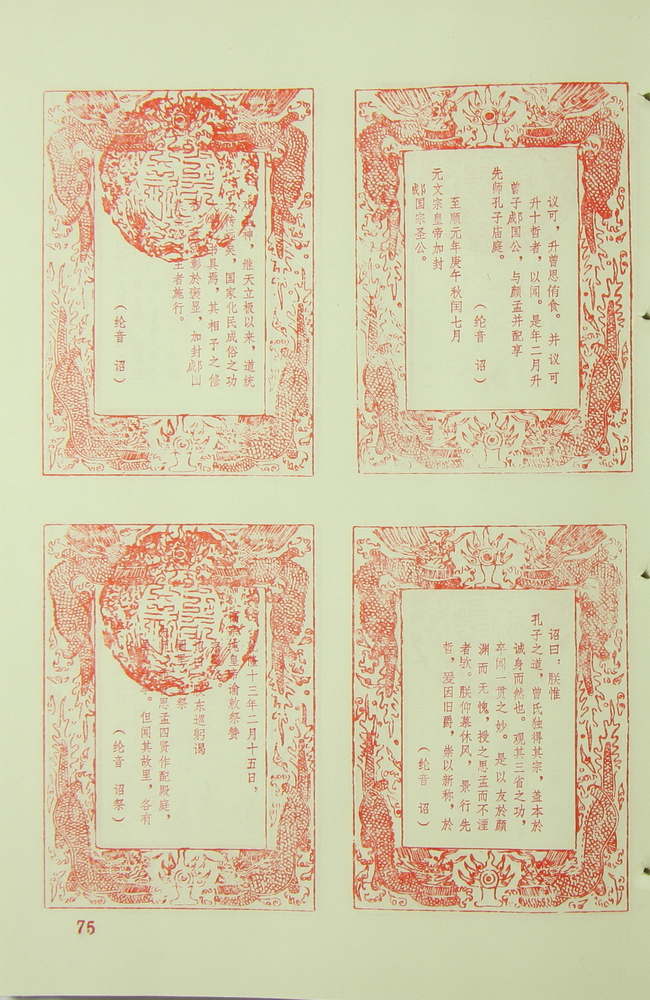 议可，升曾思侑食。 并议可
升十哲者，以闻。是年二月升
曾子郕国公，与颜孟并配享
先师孔子庙庭。
（纶音 诏）
至顺元年庚午秋闰七月
元文宗皇帝加封
郕国宗圣公。
神，继天立极以来，道统
传 矣，国家化民成俗之功
书具焉，其相予之修
彰於褒显，加封郕国
主者施行。
（纶音 诏）
诏曰：朕惟
孔子之道，曾氏独得其宗，盖本於
诚身而然也。观其三省之功，
卒闻一贯之妙。是以友於颜
渊而无愧，授之思孟而不湮
者欤。朕仰慕休风，景行先
哲，爰因旧爵，崇以新称，於
（纶音 诏）
十三年二月十五日，
皇帝谕敕祭赞
东巡躬谒
祭
思孟四贤作配殿庭，
。但闻其故里，各有
（纶音 诏祭）
75